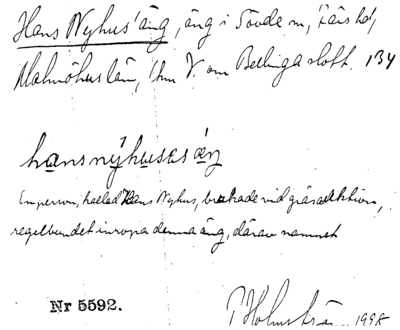 Hans Nyhus' äng, äng i Sövde sn, Färs hd,
Malmöhus län, 1 km V. om Bellinga slott. 134
hansnýhusəs äŋ
En person, kallad Hans Nyhus, brukade vid gräsauktion,
regelbundet inropa denna äng, därav namnet
Nr 5592.
Holmström 1998